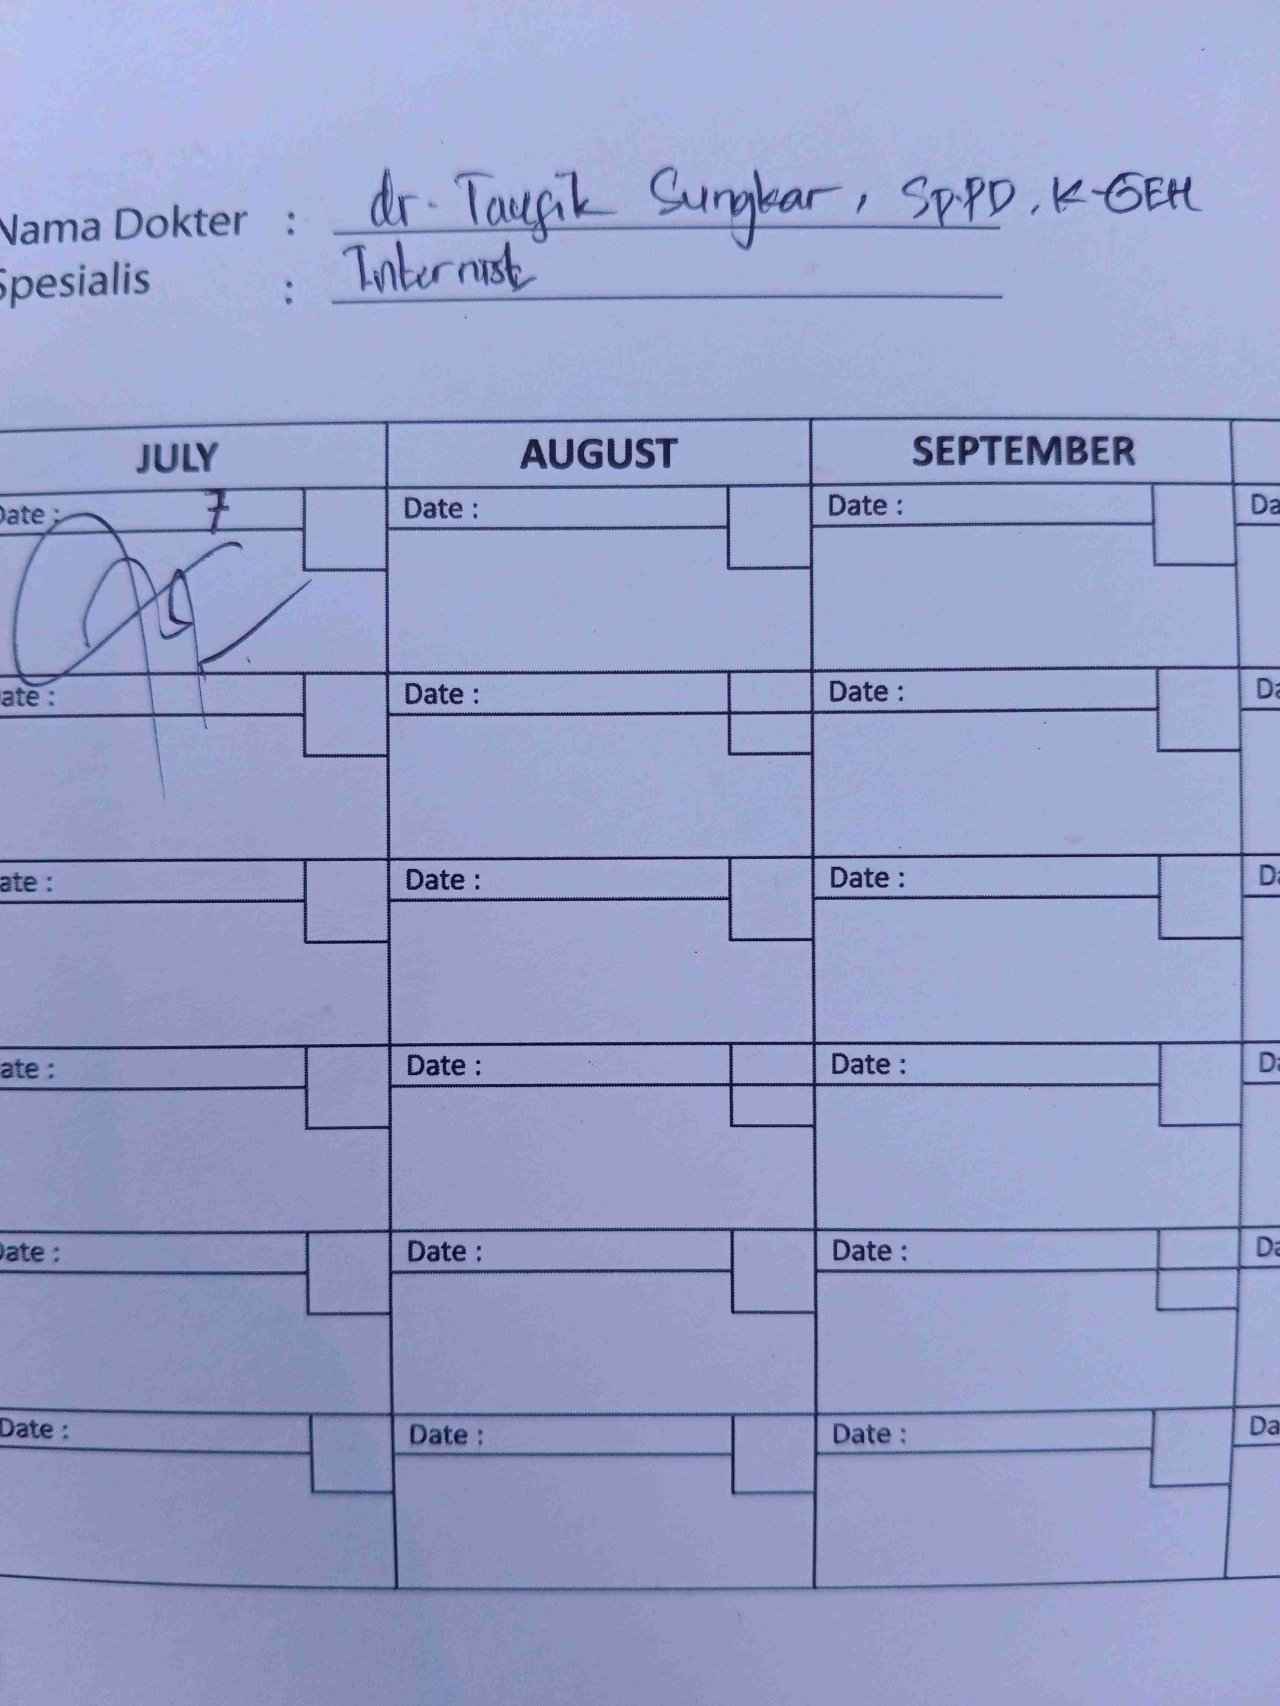 Nama Dokter : dr. Taufik Sungkar, Sp.PD, K-GEH
Spesialis : Internist
JULY AUGUST SEPTEMBER
Date : 7 Date : Date : Da
ate : Date : Date : Da
ate : Date : Date : Da
ate : Date : Date : Da
Date : Date : Date : Da
Date : Date : Date : Da